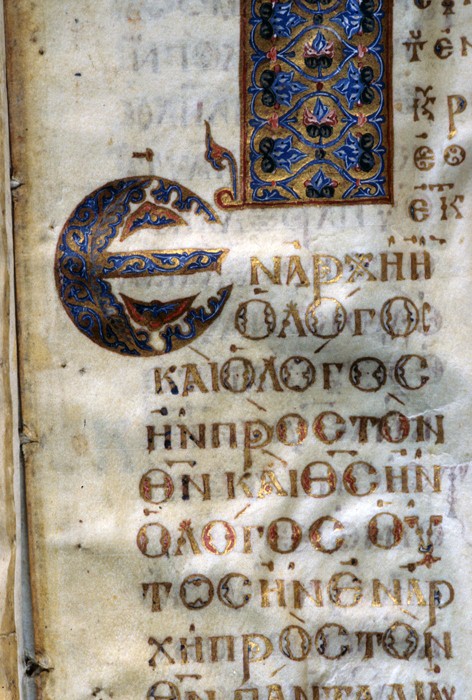 ΕΝ ΑΡΧΗ Η̅
Ο ΛΟΓΟϹ
ΚΑΙ Ο ΛΟΓΟϹ
ΗΝ ΠΡΟϹ ΤΟΝ
Θ̅Ν̅ ΚΑΙ Θ̅Ϲ̅ ΗΝ
Ο ΛΟΓΟϹ ΟΥ
ΤΟϹ ΗΝ ΕΝ ΑΡ
ΧΗ ΠΡΟϹ ΤΟΝ
Θ̅Ν̅ ΠΑΝΤΑ